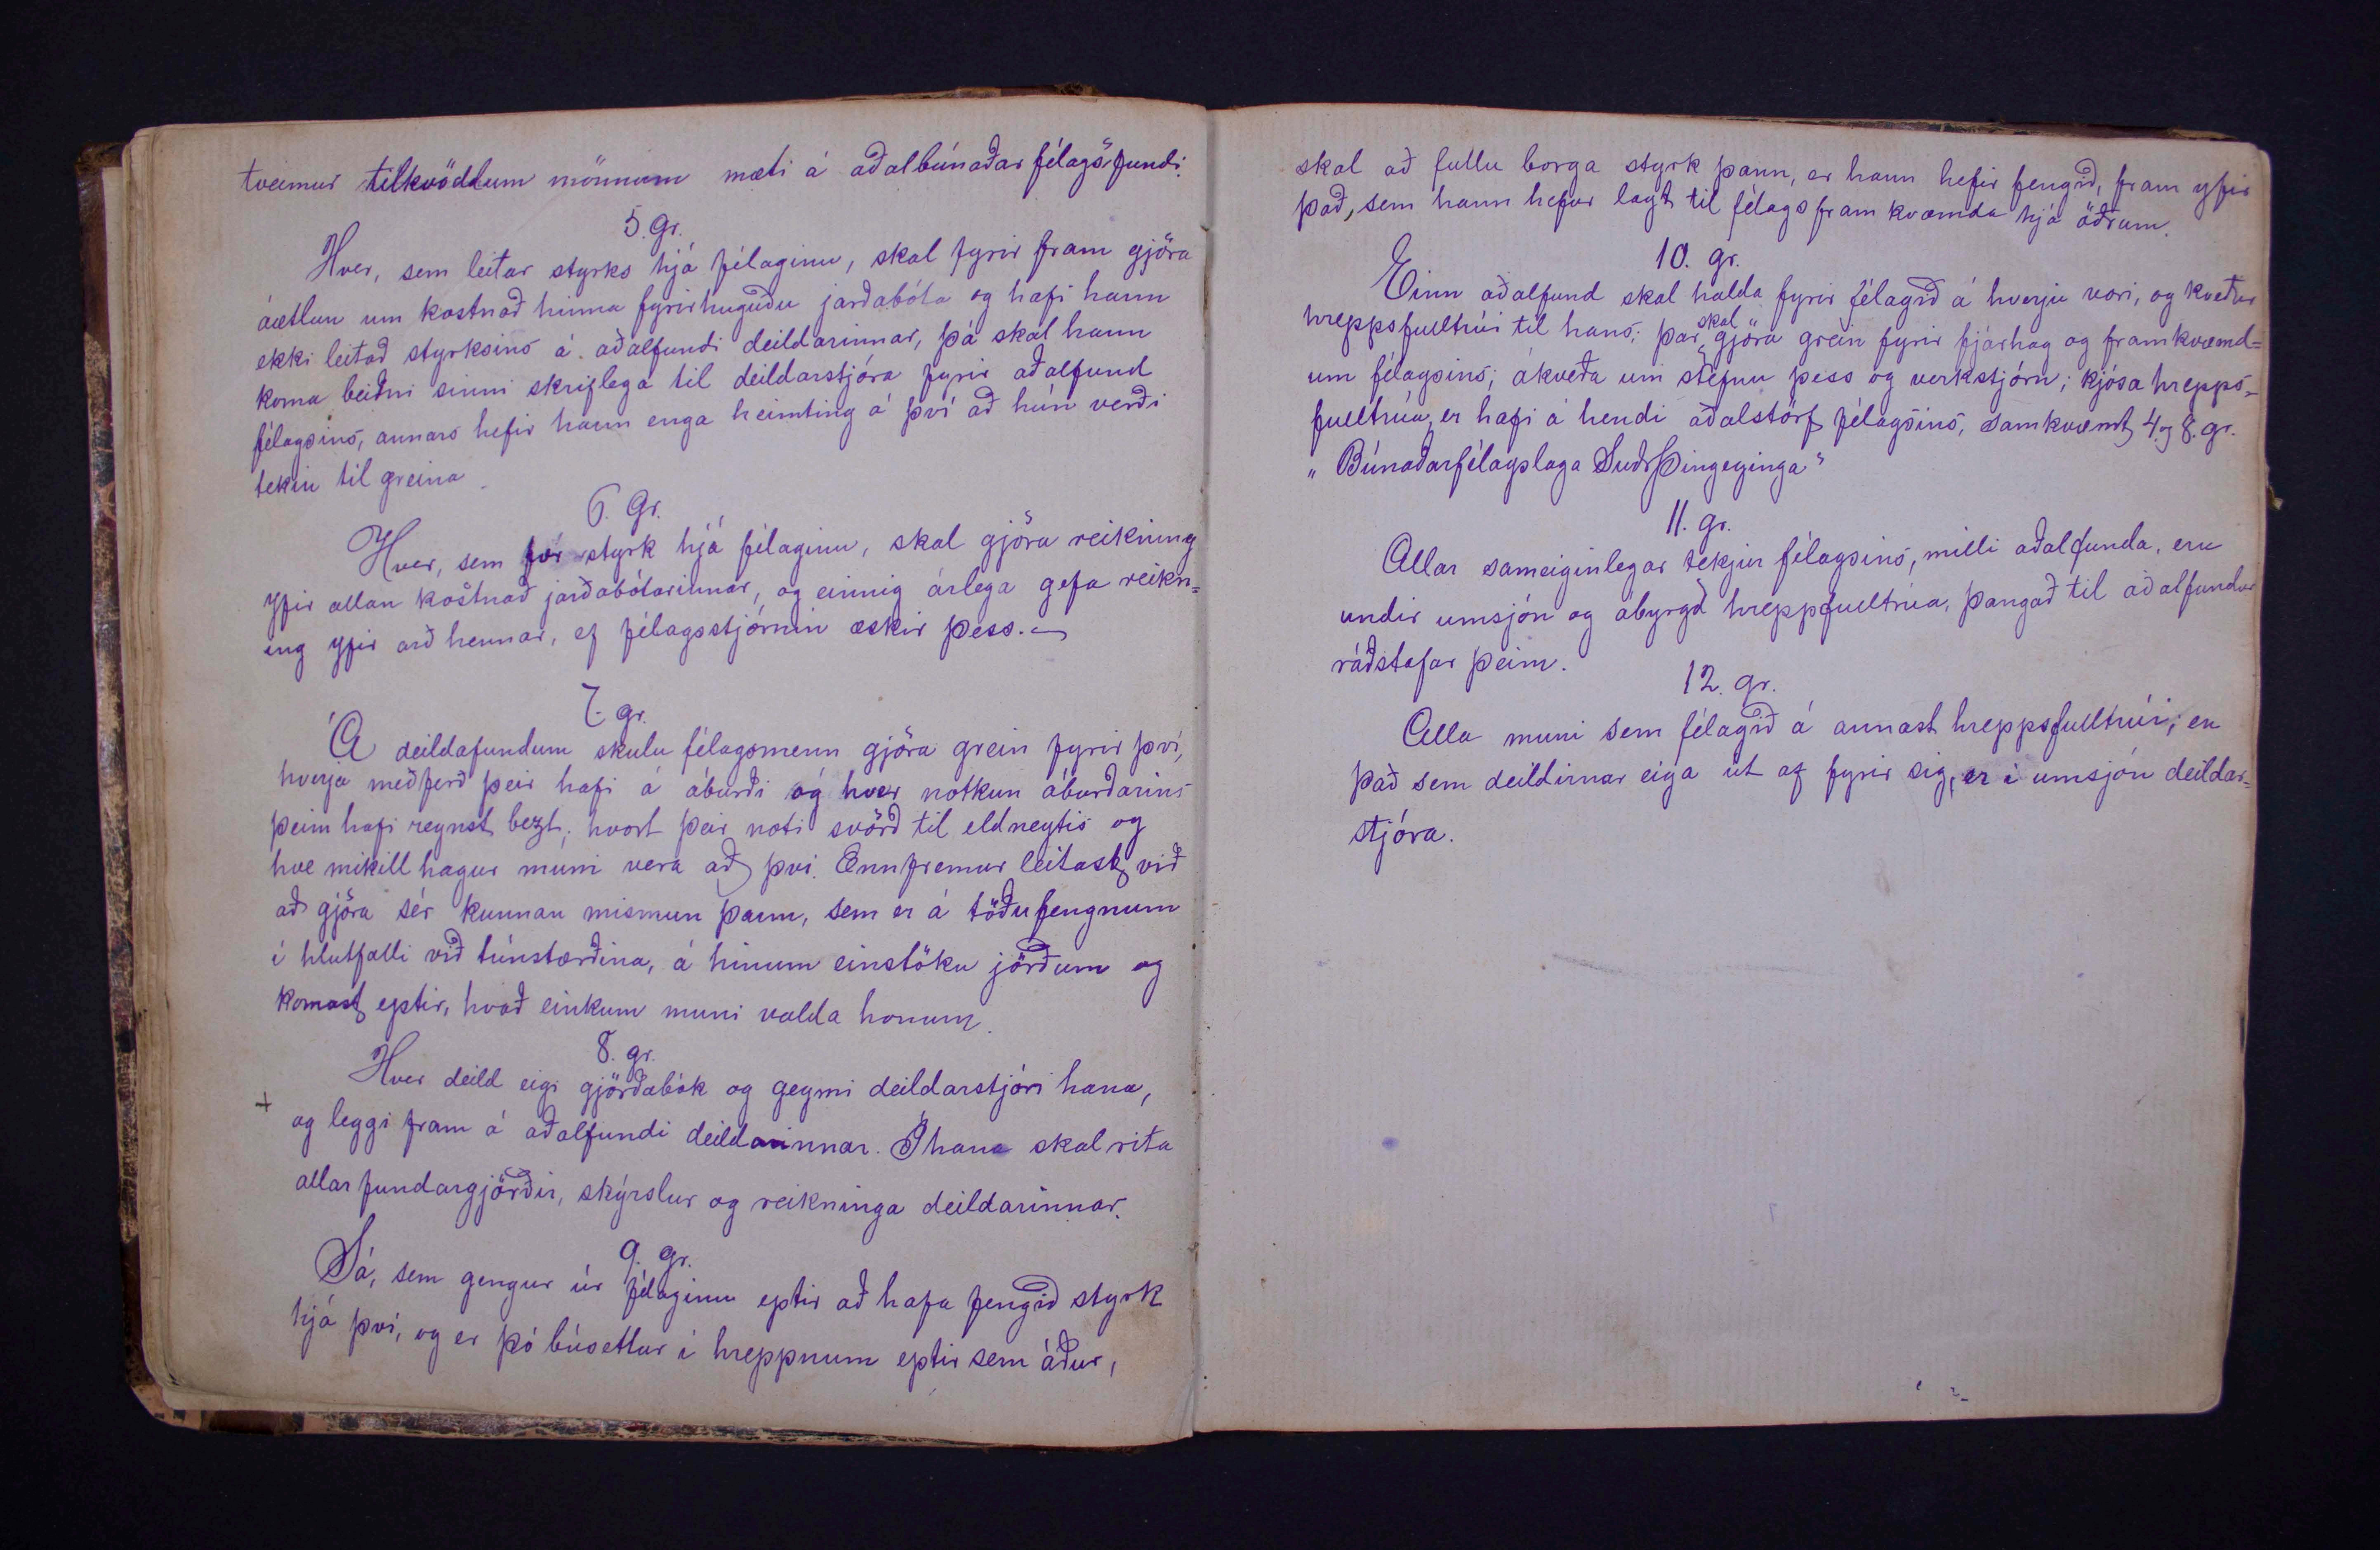 tveimur tilkvöddum mönnum mæti á aðalbúnaðarfélagsfundi.
5. gr.
Hver, sem leitar styrks hjá félaginu, skal fyrir fram gjöra
áætlun um kostnað hinna fyrirhuguðu jarðabóta og hafi hann
ekki leitað styrksins á aðalfundi deildarinnar, þá skal hann
koma beiðni sinni skriflega til deildarstjóra fyrir aðalfund
félagsins, annars hefir hann enga heimting á því að hún verði
tekin til greina.
6. Gr.
Hver, sem fær styrk hjá félaginu, skal gjöra reikning
yfir allan kostnað jarðabótarinnar, og einnig árlega gefa reikn=
ing yfir arð hennar, ef félagsstjórnin æskir þess. —
7. gr.
Á deildafundum skulu félagsmenn gjöra grein fyrir því,
hverja meðferð þeir hafi á áburði og hver notkun áburðarins
þeim hafi reynst bezt; hvort þeir noti svörð til eldneytis og
hve mikill hagur muni vera að því. Ennfremur leitast við
að gjöra sér kunnan mismun þann, sem er á töðufengnum
í hlutfalli við túnstærðina, á hinum einstöku jörðum og
komast eptir, hvað einkum muni valda honum.
8. gr.
Hver deild eigi gjörðabók og geymi deildarstjóri hana,
+ og leggi fram á aðalfundi deildarinnar. Í hana skal rita
allar fundargjörðir, skýrslur og reikninga deildarinnar.
9. gr.
Sá, sem gengur úr félaginu eptir að hafa fengið styrk
hjá því, og er þó búsettur í hreppnum eptir sem áður,
skal að fullu borga styrk þann, er hann hefir fengið, fram yfir
það, sem hann hefur lagt til félagsframkvæmda hjá öðrum.
10. gr.
Einn aðalfund skal halda fyrir félagið á hverju vori, og kveður
hreppsfulltrúi til hans; þar skal gjöra grein fyrir fjárhag og framkvæmd=
um félagsins; ákveða um stefnu þess og verkstjórn; kjósa hrepps=
fulltrúa, er hafi á hendi aðalstörf félagsins, samkvæmt 4. og 8. gr.
„Búnaðarfélagslaga SuðrÞingeyinga"
11. gr.
Allar sameiginlegar tekjur félagsins, milli aðalfunda, eru
undir umsjón og ábyrgð hreppfulltrúa, þangað til aðalfundur
ráðstafar þeim.
12. gr.
Alla muni sem félagið á annast hreppsfulltrúi; en
það sem deildirnar eiga út af fyrir sig, er í umsjón deildar=
stjóra.